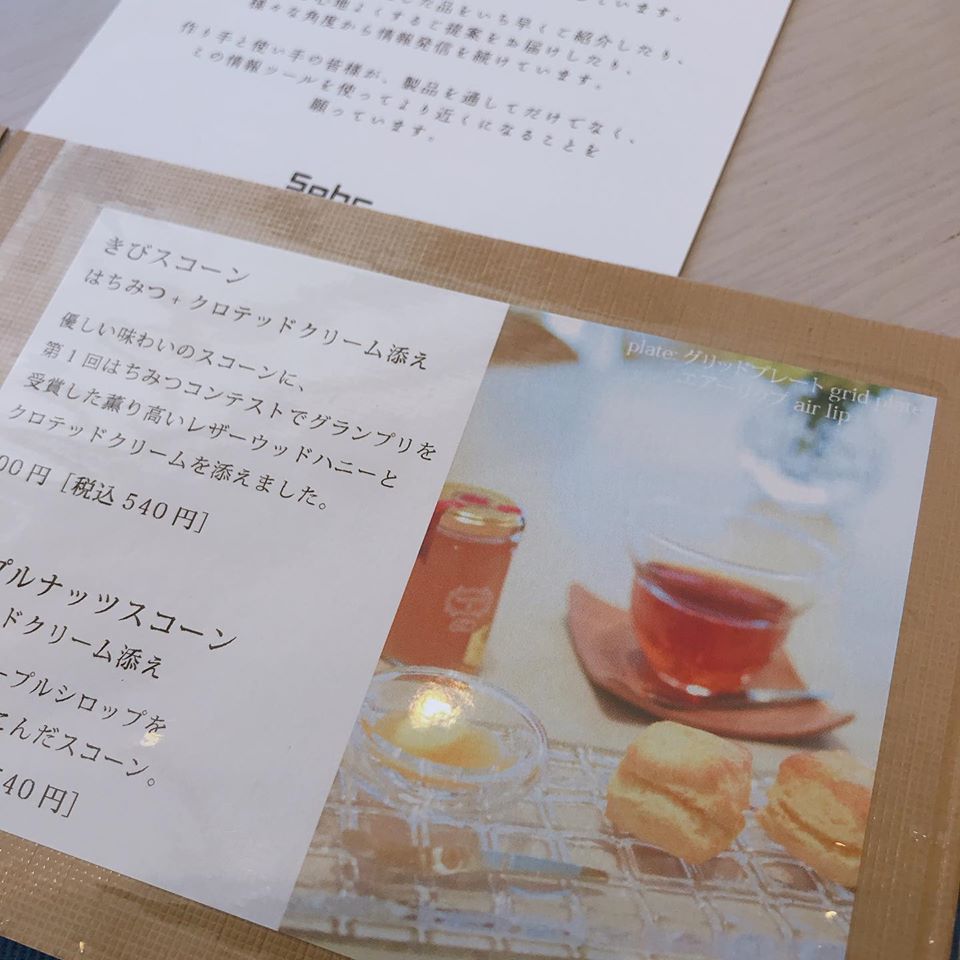 した品をいち早くご紹介したり、
心地よくするご提案をお届けしたり、
様々な角度から情報発信を続けています。
作り手と使い手の皆様が、製品を通してだけでなく、
この情報ツールを使ってより近くになることを
願っています。
きびスコーン
はちみつ+クロテッドクリーム添え
優しい味わいのスコーンに、
第1回はちみつコンテストでグランプリを
受賞した薫り高いレザーウッドハニーと
クロテッドクリームを添えました。
00円[税込540円]
プルナッツスコーン
ドクリーム添え
ープルシロップを
こんだスコーン。
40円]
plate: グリッドプレート grid plate
air lip